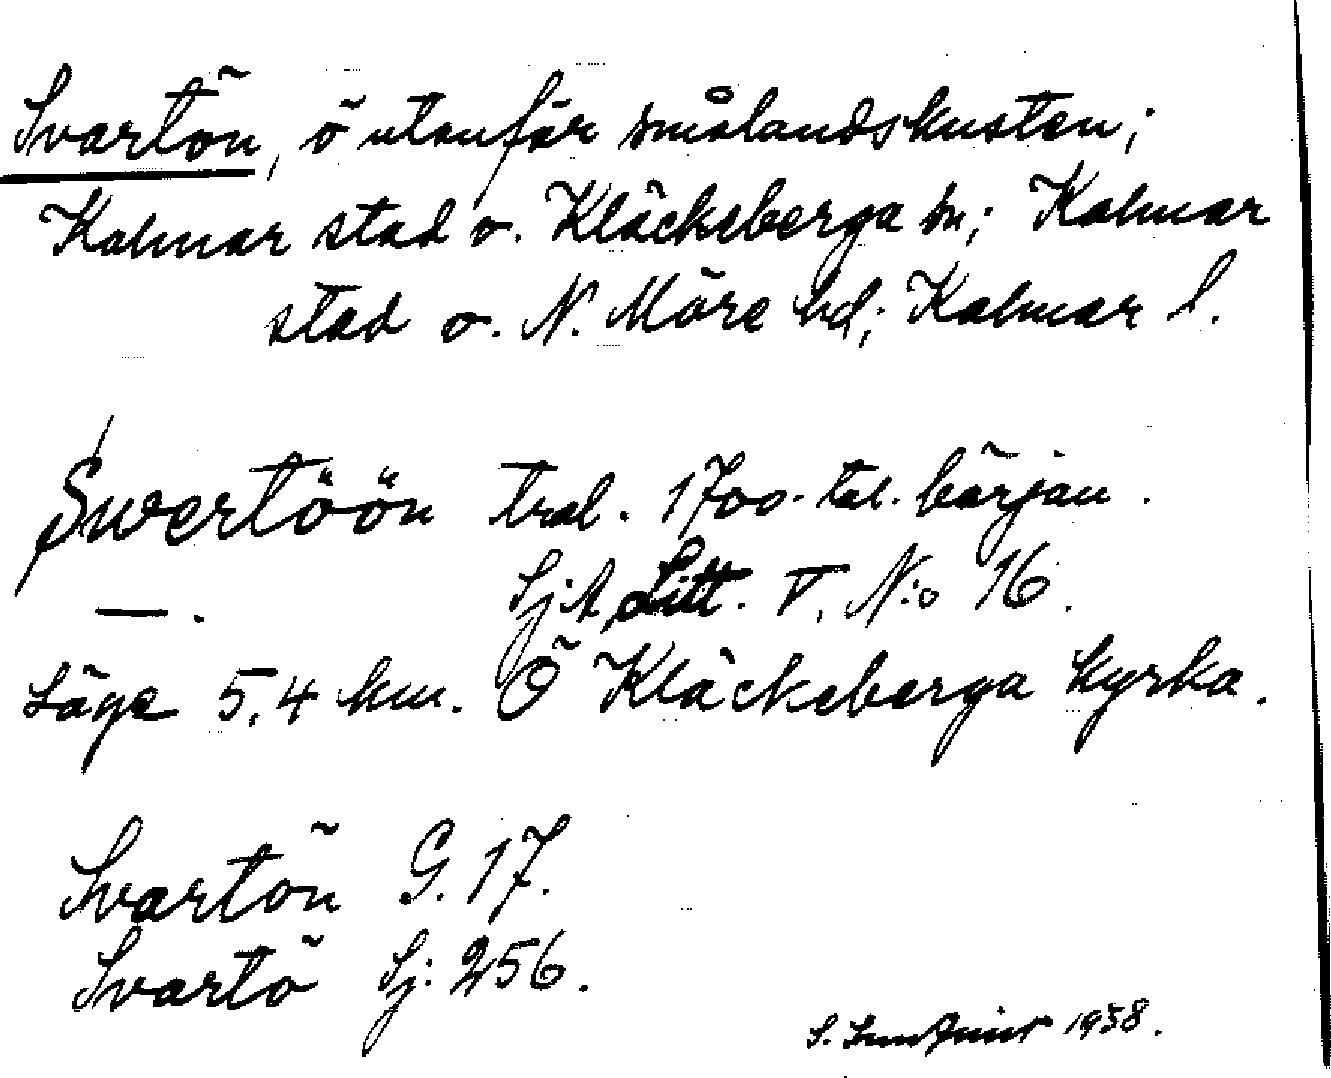 Svartön, ö utanför smålandskusten;
Kalmar stad o. Kläckeberga sn; Kalmar
stad o. N. Möre hd; Kalmar l.
Swertöön trol. 1700-tal. början.
—. SjA, Litt. V, N:o 16.
Läge 5,4 km. Ö Kläckeberga kyrka.
Svartön G. 17.
Svartö Sj: 256.
S. 1938.